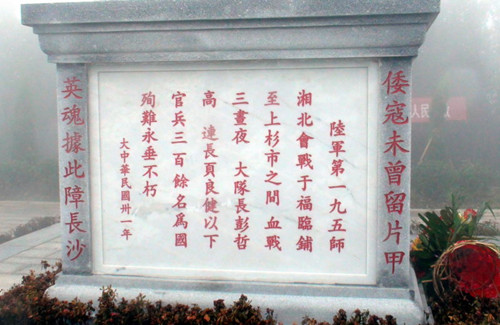 倭寇未曾留片甲
陸軍第一九五師
湘北會戰于福臨鋪
至上杉市之間 血戰
三晝夜 大隊長彭哲
高 連長頁良健以下
官兵三百餘名爲國
殉難永垂不朽
大中華民國卅一年
英魂據此障長沙
人民